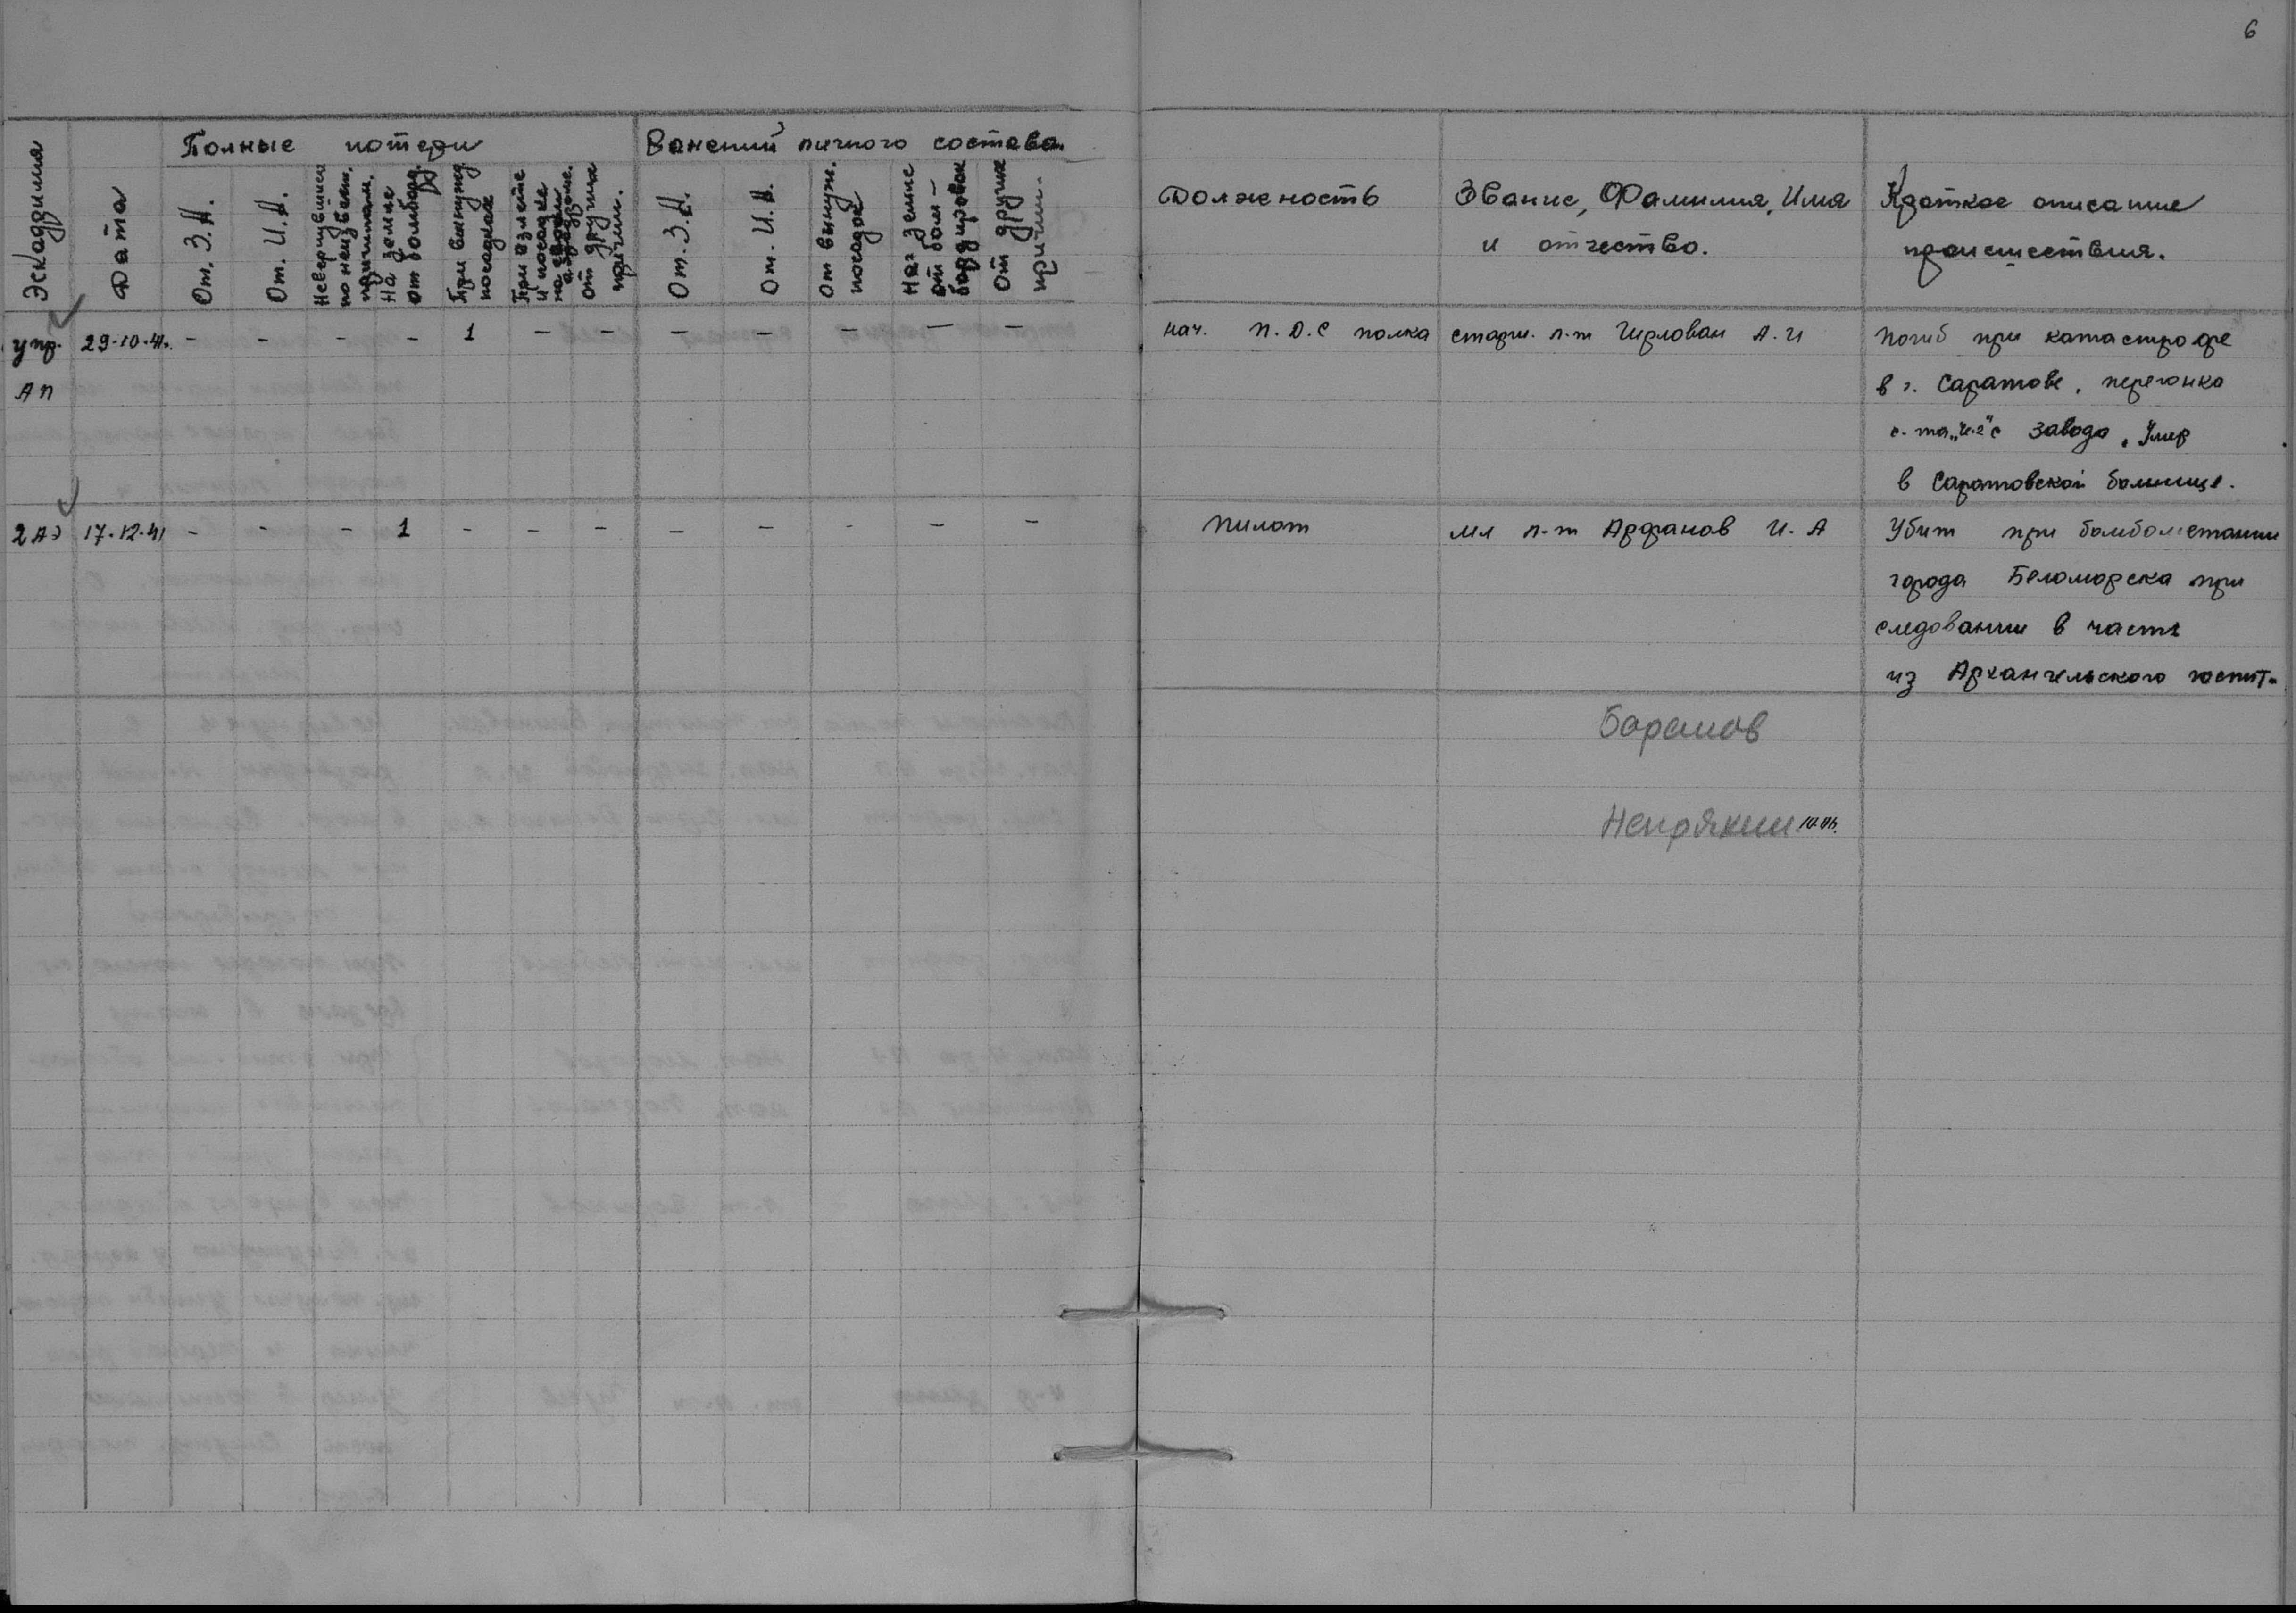 6
Эскадрилия
Дата
Полные потери
От. З.А.
От. И.А.
Невернувшиеся по неизвест. причинам.
На земле от бомбард.
При вынужд. посадках
При взлете и посадке на своем аэродроме.
От других причин.
Ранений личного состава.
От. З.А.
От. И.А.
От вынуж. посадок
На земле от бом-бардировок
От других причин.
Должность
Звание, Фамилия, Имя
и отчество.
Краткое описание
происшествия.
упр. 29-10-41. - - - - 1 - - - - - - - нач. П.Д.С полка старш. л-т Чирлован А.И Погиб при катастрофе
АП в г. Саратове, перегонка
с. та "И-2" с завода. Умер
в Саратовской болнице.
2 АЭ 17-12-41 - - - 1 - - - - - - - - Пилот мл л-т Арфанов И.А Убит при бомбометании
города Беломорска при
следовании в часть
из Архангельского госпит.
Баранов